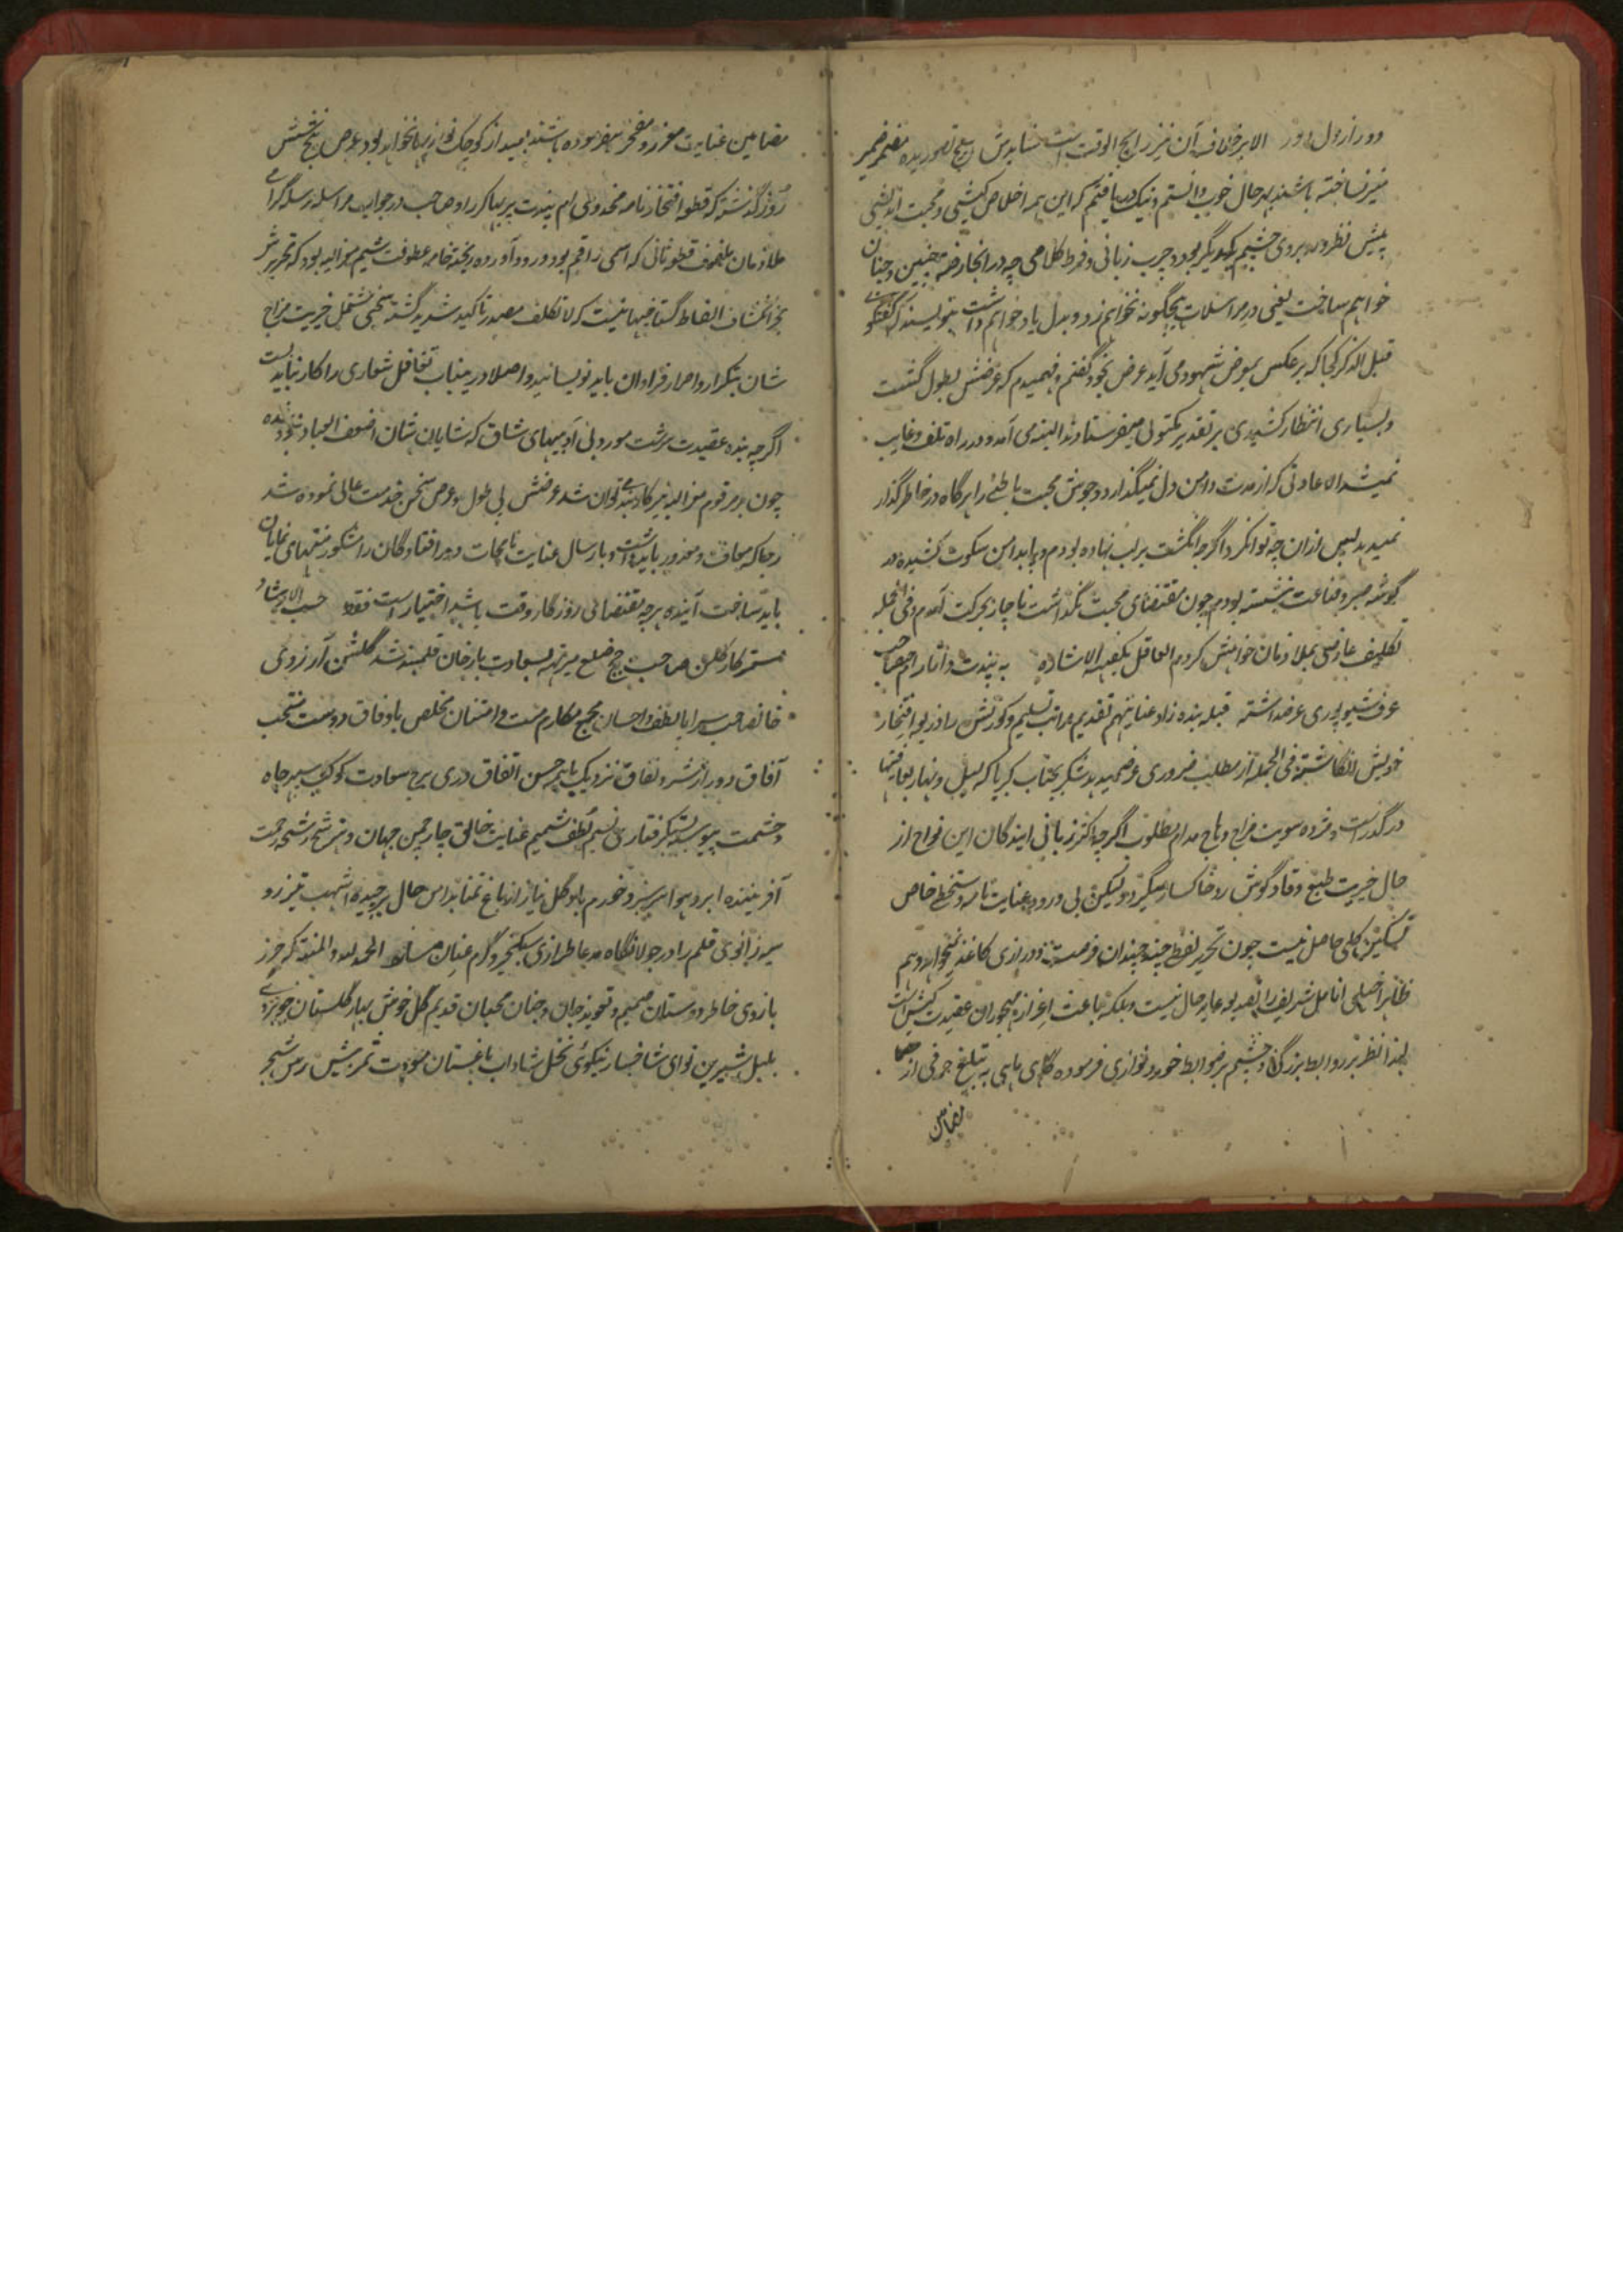 دور از دل دور الا برخلاف آن نیز رایج الوقت است شایدش
نیز نساخته باشند بهر حال خوب دانستم و نیک دریافتم که این همه اخلاص کیشی و محبت اندیشی
پیش نظر و روبروی چشم یکدیگر بود و چرب زبانی و فرط کلامی چه در آنجا چنین و چنان
خواهم ساخت یعنی در مراسلات هیچگونه نخواهم زد و بدل یاد خواهم داشت
قبل الذکر کجا که برعکس بمعرض شهود می آید عرض بخود گفتم و فهمیدم که عرضش بطول گشت
و بسیاری انتظار کشیدی بر تقدیر مکتوبی میفرستادند البته می آمد و در راه تلف و غایب
نمیشد الا عادتی که از مدت دامن دل نمیگذارد و جوش محبت باطنی را هرگاه در خاطر گذار
نمیدهد پس ازان چه توانکرد اگرچه انگشت بر لب نهاده بودم و پا بدامن سکوت کشیده در
گوشه صبر و قناعت نشسته بودم چون مقتضای محبت نگذاشت ناچار بحرکت آمدم و فی الجمله
تکلیف عارضی بملازمان خواهش کردم العاقل یکفیه الاشاره به پندت دتاتارام صاحب
عرف شیوپوری عرضداشته قبله بنده زاد عنایتهم تقدیم مراتب تسلیم و کورنش را ذریعه افتخار
خویش انگاشته فی الجمله از مطلب ضروری عرض میدهد شکر بجناب کبریا که لیل و نهار بعافیتها
درگذر است و مژده صوبت مزاج وهاج مدام مطلوب اگرچه اکثر زبانی آیندگان این نواح از
حال خیریت طبع وقاد گوش زد خاکسار میگردد لیکن بی ورود عنایت نامه دستخطی خاص
تسکین کلی حاصل نیست چون تحریر لفظی چند چندان فرصت و درازی کاغذ نمیخواهد و هم
ظاهرا خلی انامل شریف را بعد عاید حال نیست و بلکه باعث اعزاز مهجوران عقیدت کیش است
لهذا نظر بر روابط بزرگی و چشم بر ضوابط خورد نوازی فرموده گاهی ماهی به تبلیغ حرفی از
مضامین
مضامین عنایت معزز و مفتخر میفرموده باشند بعید از کوچک نوازیها نخواهد بود عرض
روز گذشته که قطعه افتخارنامه مخدومی ام پندت پربهاکر راو صاحب در جواب مراسله مرسله گرامی
ملازمان ملفوف قطعه ثانی که اسمی راقم بود ورود آورده ریخته خامه عطوفت شیم معزالیه بود که تحریرش
بجز انکشاف الفاظ گستاخیها نیست که لا تکلف مصدر تاکید شدید گشته سخنی مشتمل خیریت مزاج
شان بتکرار و اصرار فراوان باید نویسانید و اصلا درینباب تغافل شعاری را کار نبایست
اگرچه بنده عقیدت سرشت موروثی آدمیهای شاق که شایان شان اضعف العباد نبوده
چون بر مرقوم معزالیه نیز کاربند توان شد عرضش بی طول بمعرض سخن خدمت عالی نموده شد
رجا که معاف و معذور باید داشت و بارسال عنایت نامجات دور افتادگان را مشکور منتهای نمایان
باید ساخت آینده هرچه مقتضای روزگار و وقت باشد اختیار است فقط حسب الارشاد
مستر کارکلن صاحب جج ضلع میرته بسعادت یارخان قلمبند شد گلشن آرزوی
خانصاحب سراپا لطف و احسان مجمع مکارم منت و امتنان مخلص باوفاق دوست منتخب
آفاق دور از شر و نفاق نزدیک باهم حسن اتفاق دری برج سعادت کوکب سپهر جاه
و حشمت پیوسته نسیم لطف شمیم عنایت خالق چار چمن جهان و ترشح رشحه رحمت
آفریننده ابر و هوا سرسبز و خورم باد گل نیاز از باغ تمنا بداس حال برچیده اشهب تیزرو
قلم را در جولانگاه مدعا طرازی سبکخیز و گرم عنان میسازد الحمد لله والمنة که حرز
بازوی خاطر دوستان صمیم و تعویذ جان و جنان محبان قدیم گل خوش بهار گلستان
بلبل شیرین نوای شاخسار نیکوئی نخل شاداب باغستان مودت ثمر پیش رس شجر